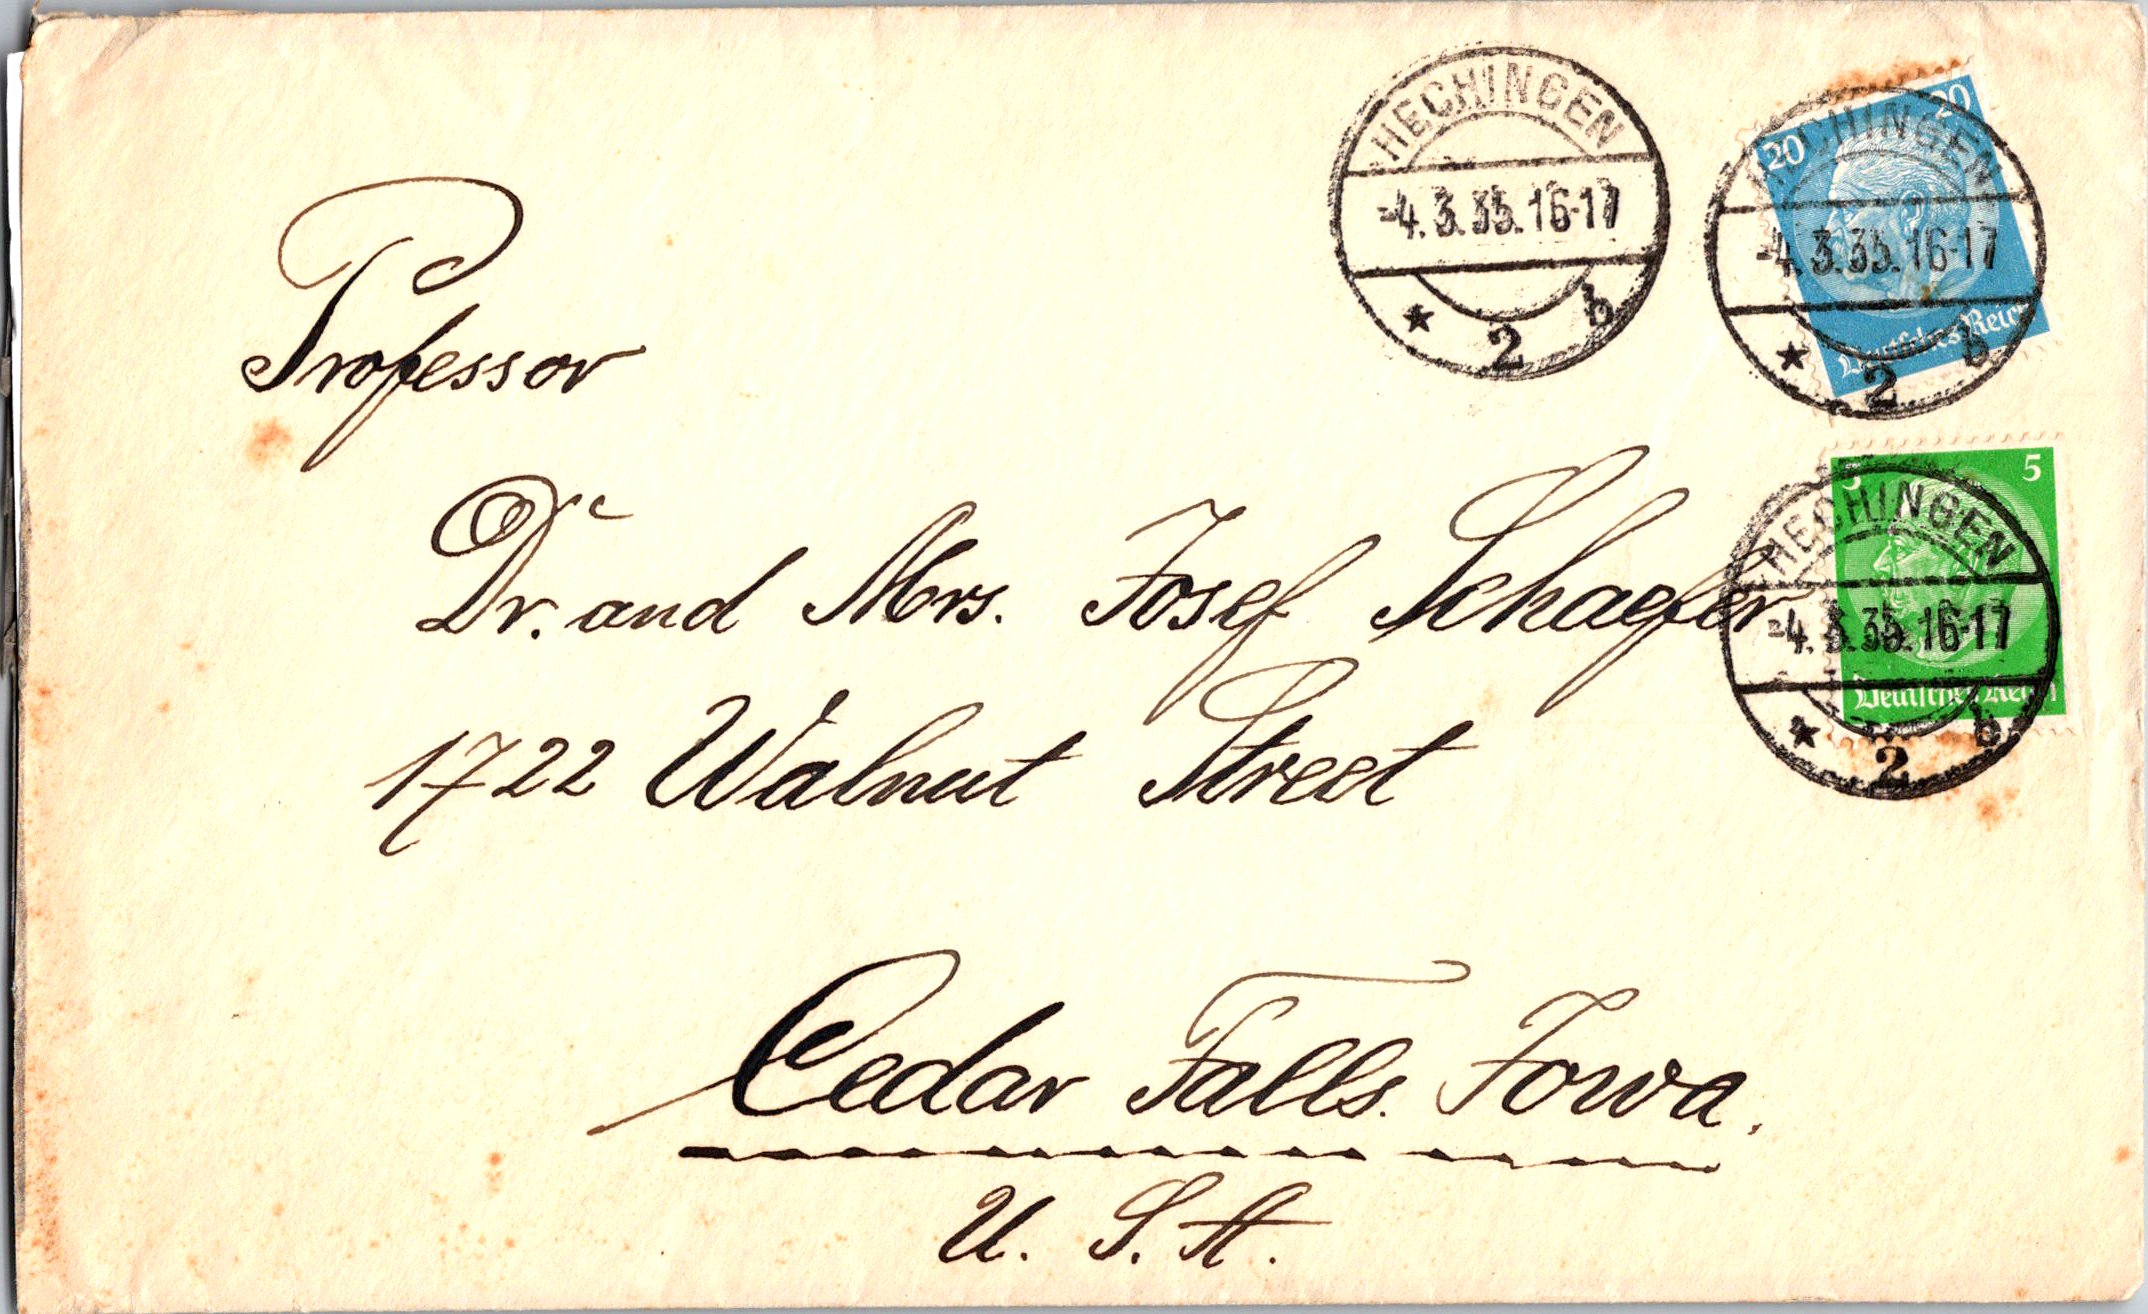 HECHINGEN
-4.3.35.16-17
* 2 b
20 20
HECHINGEN
-4.3.35.16-17
Deutsches Reich
* 2 b
Professor
5 5
HECHINGEN
Dr. and Mrs. Josef Schaefer
-4.3.35.16-17
Deutsches Reich
* 2 b
1722 Walnut Street
Cedar Falls. Iowa.
U. S. A.